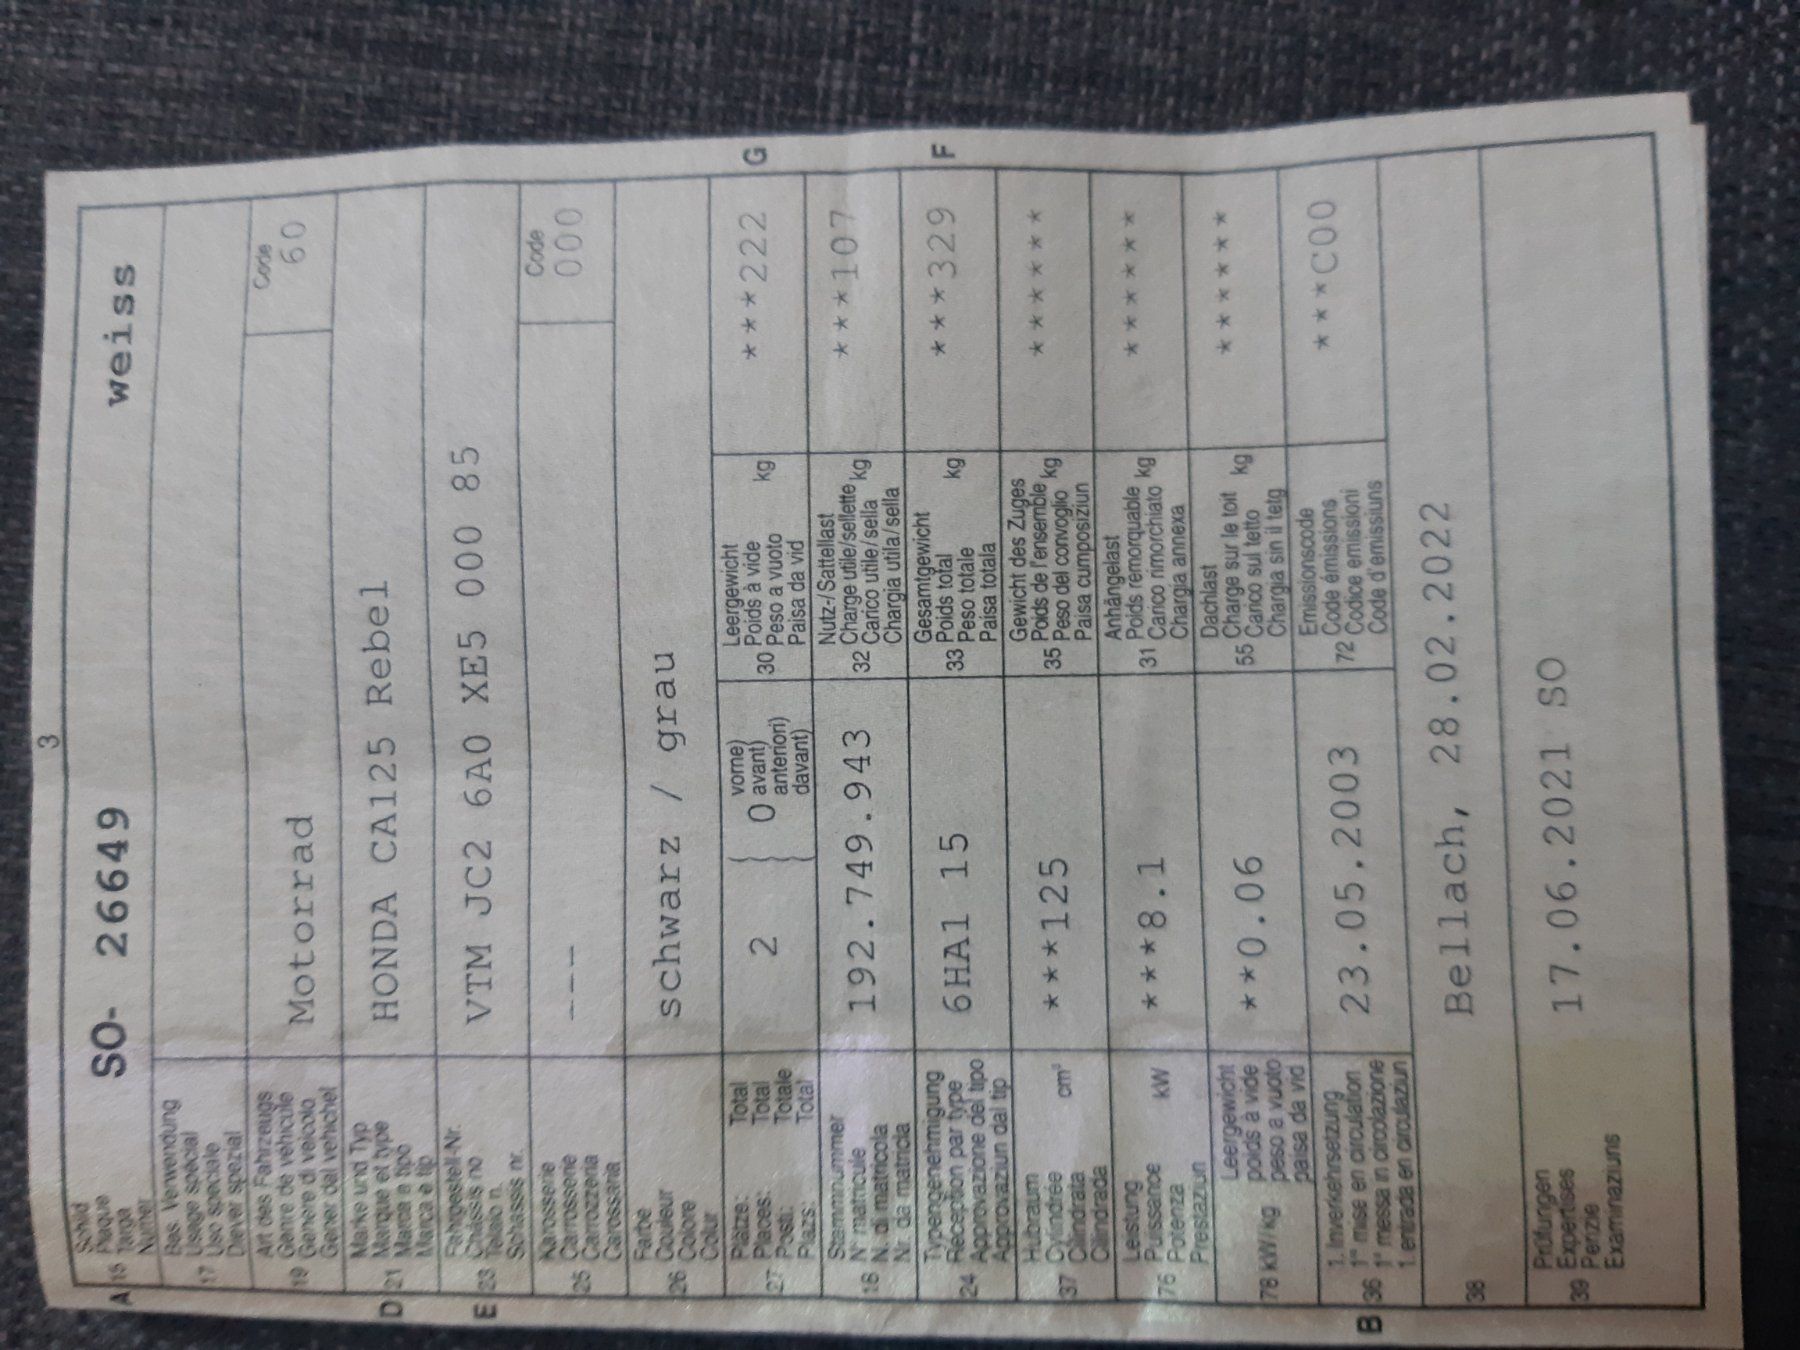 3
A 15 Schild
Plaque
Targa
Numer
SO- 26649 weiss
17 Bes. Verwendung
Usage spécial
Uso speciale
Diever spezial
19 Art des Fahrzeugs
Genre de véhicule
Genere di veicolo
Gener dal vehichel
Motorrad
Code
60
D 21 Marke und Typ
Marque et type
Marca e tipo
Marca e tip
HONDA CA125 Rebel
E 23 Fahrgestell-Nr.
Châssis no
Telaio n.
Schassis nr.
VTM JC2 6A0 XE5 000 85
25 Karosserie
Carrosserie
Carrozzeria
Carossaria
---
Code
000
26 Farbe
Couleur
Colore
Colur
schwarz / grau
27 Plätze: Total
Places: Total
Posti: Totale
Plazs: Total
2 { 0 vorne)
avant)
anteriori)
davant)
30 Leergewicht
Poids à vide
Peso a vuoto kg
Paisa da vid
***222 G
18 Stammnummer
N° matricule
N. di matricola
Nr. da matricla
192.749.943
32 Nutz-/Sattellast
Charge utile/sellette kg
Carico utile/sella
Chargia utila/sella
***107
24 Typengenehmigung
Réception par type
Approvazione del tipo
Approvaziun dal tip
6HA1 15
33 Gesamtgewicht
Poids total kg
Peso totale
Paisa totala
***329 F
37 Hubraum
Cylindrée cm³
Cilindrata
Cilindrada
***125
35 Gewicht des Zuges
Poids de l'ensemble kg
Peso del convoglio
Paisa cumposiziun
******
76 Leistung
Puissance kW
Potenza
Prestaziun
***8.1
31 Anhängelast
Poids remorquable kg
Carico rimorchiato
Chargia annexa
******
78 kW/kg Leergewicht
poids à vide
peso a vuoto
paisa da vid
**0.06
55 Dachlast
Charge sur le toit kg
Carico sul tetto
Chargia sin il tetg
******
B 36 1. Inverkehrsetzung
1re mise en circulation
1a messa in circolazione
1. entrada en circulaziun
23.05.2003
72 Emissionscode
Code émissions
Codice emissioni
Code d'emissiuns
***C00
38 Bellach, 28.02.2022
39 Prüfungen
Expertises
Perizie
Examinaziuns
17.06.2021 SO